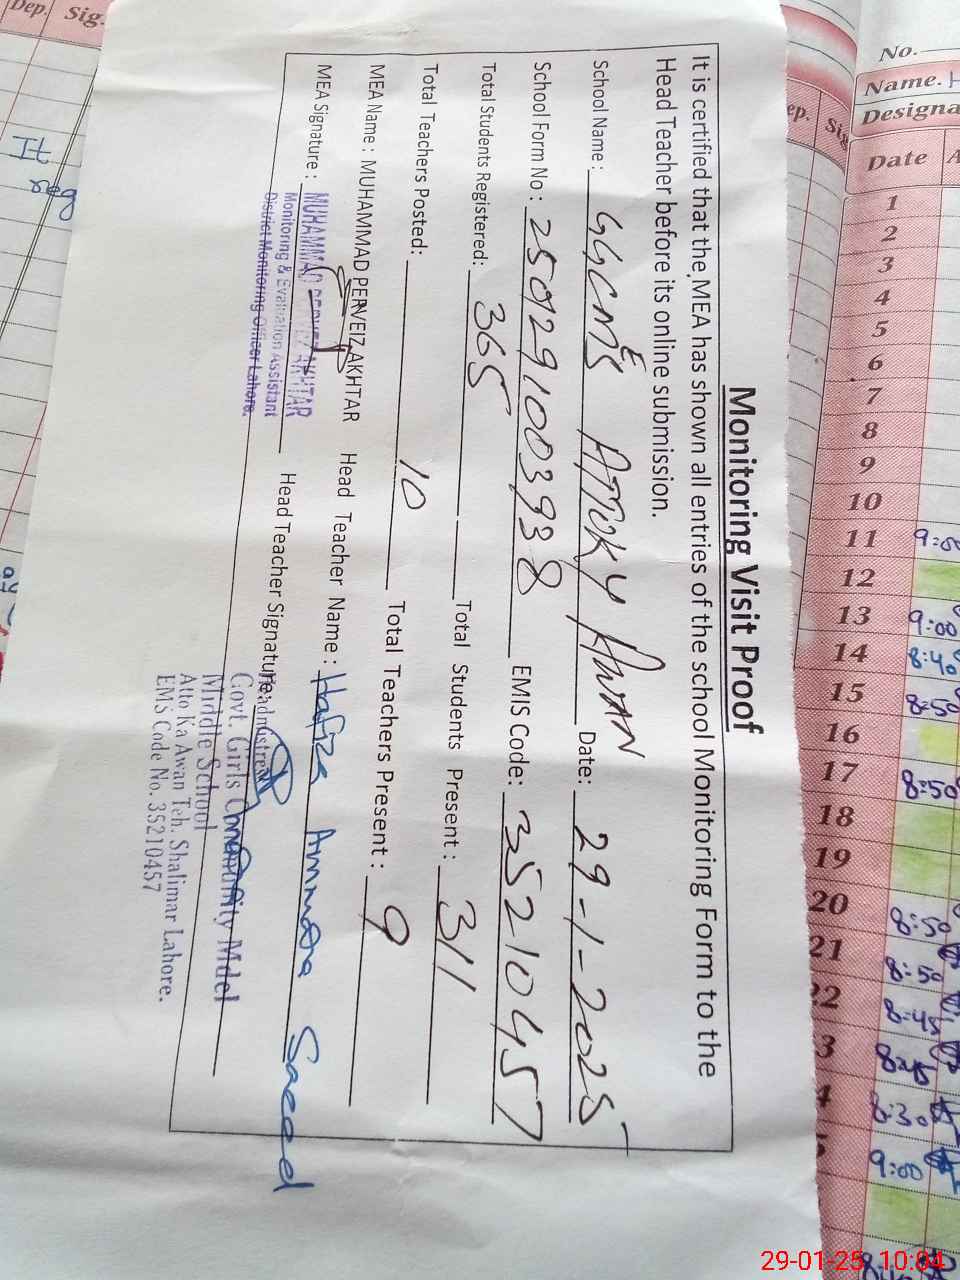 Monitoring Visit Proof
It is certified that the MEA has shown all entries of the school Monitoring Form to the
Head Teacher before its online submission.
School Name: GGCMES Attoky Awan Date: 29-1-2025
School Form No: 250129100398 EMIS Code: 35210457
Total Students Registered: 365 Total Students Present: 311
Total Teachers Posted: 10 Total Teachers Present: 9
MEA Name: MUHAMMAD PERVEIZ AKHTAR Head Teacher Name: Hafiza Ammara Saeed
MEA Signature: Head Teacher Signature:
MUHAMMAD PERVEIZ AKHTAR
Monitoring & Evaluation Assistant
District Monitoring Officer Lahore.
Headmistress
Govt. Girls Community Mdel
Middle School
Atto Ka Awan Teh. Shalimar Lahore.
EMIS Code No. 35210457
Dep. Sig.
It
ep. Sig
No.
Name. H
Designa
Date A
1
2
3
4
5
6
7
8
9
10
11 9:00
12
13 9:00
14 8:40
15 8:50
16
17 8:50
18
19
20 8:50
21 8:50
22 8:45
3 8:45
4 8:30
9:00
29-01-25 10:04